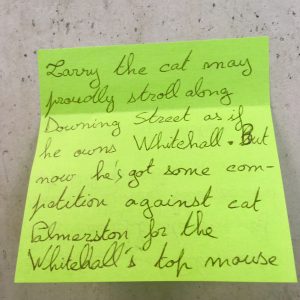 Larry the cat may
proudly stroll along
Downing Street as if
he owns Whitehall. But
now he's got some com-
petition against cat
Palmerston for the
Whitehall's top mouse